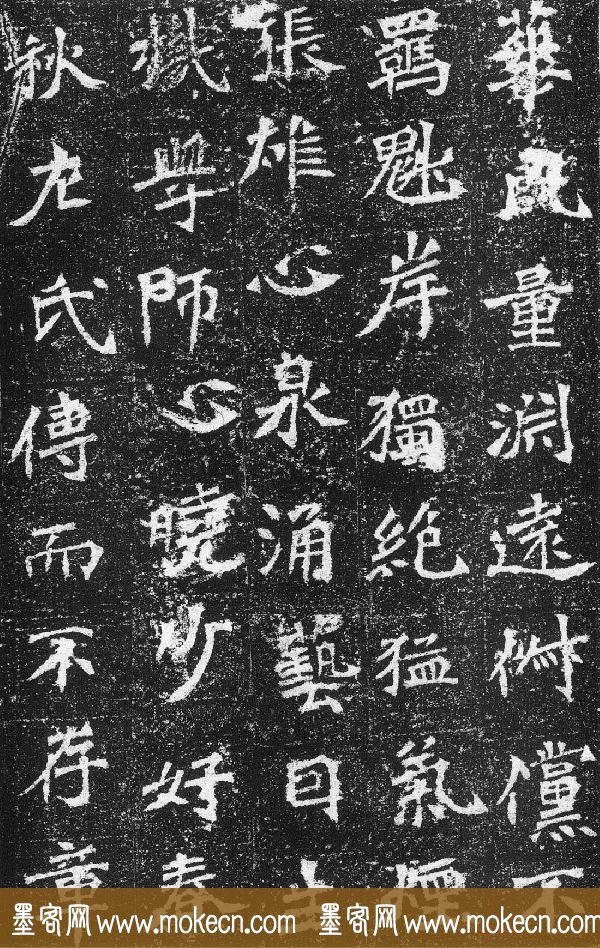 華風量淵遠俶儻不
羈魁岸獨絕猛氣煙
張雄心泉涌藝囙生
機學師心曉少好春
秋左氏傳而不存章
墨客网 www.mokecn.com 墨客网 www.mokecn.com